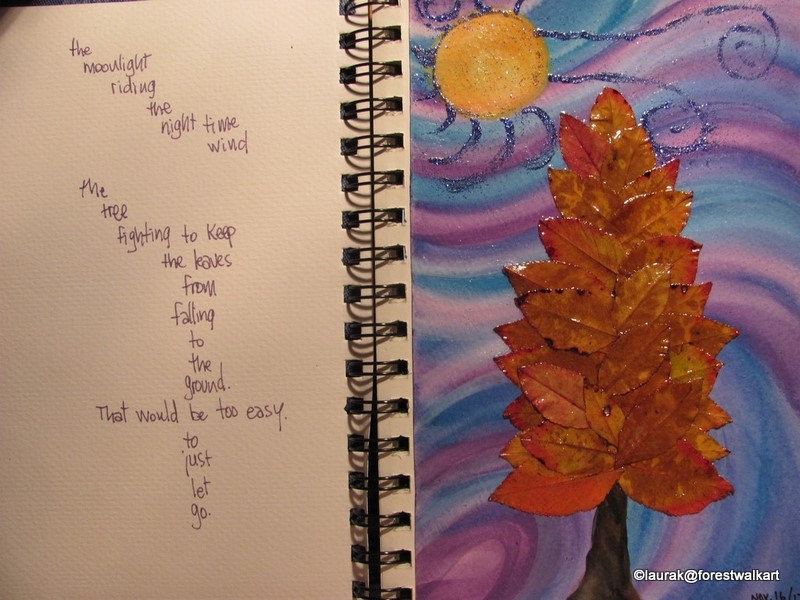 the
moonlight
riding
the
night time
wind
the
tree
fighting to keep
the leaves
from
falling
to
the
ground.
That would be too easy.
to
just
let
go.
©laurak@forestwalkart